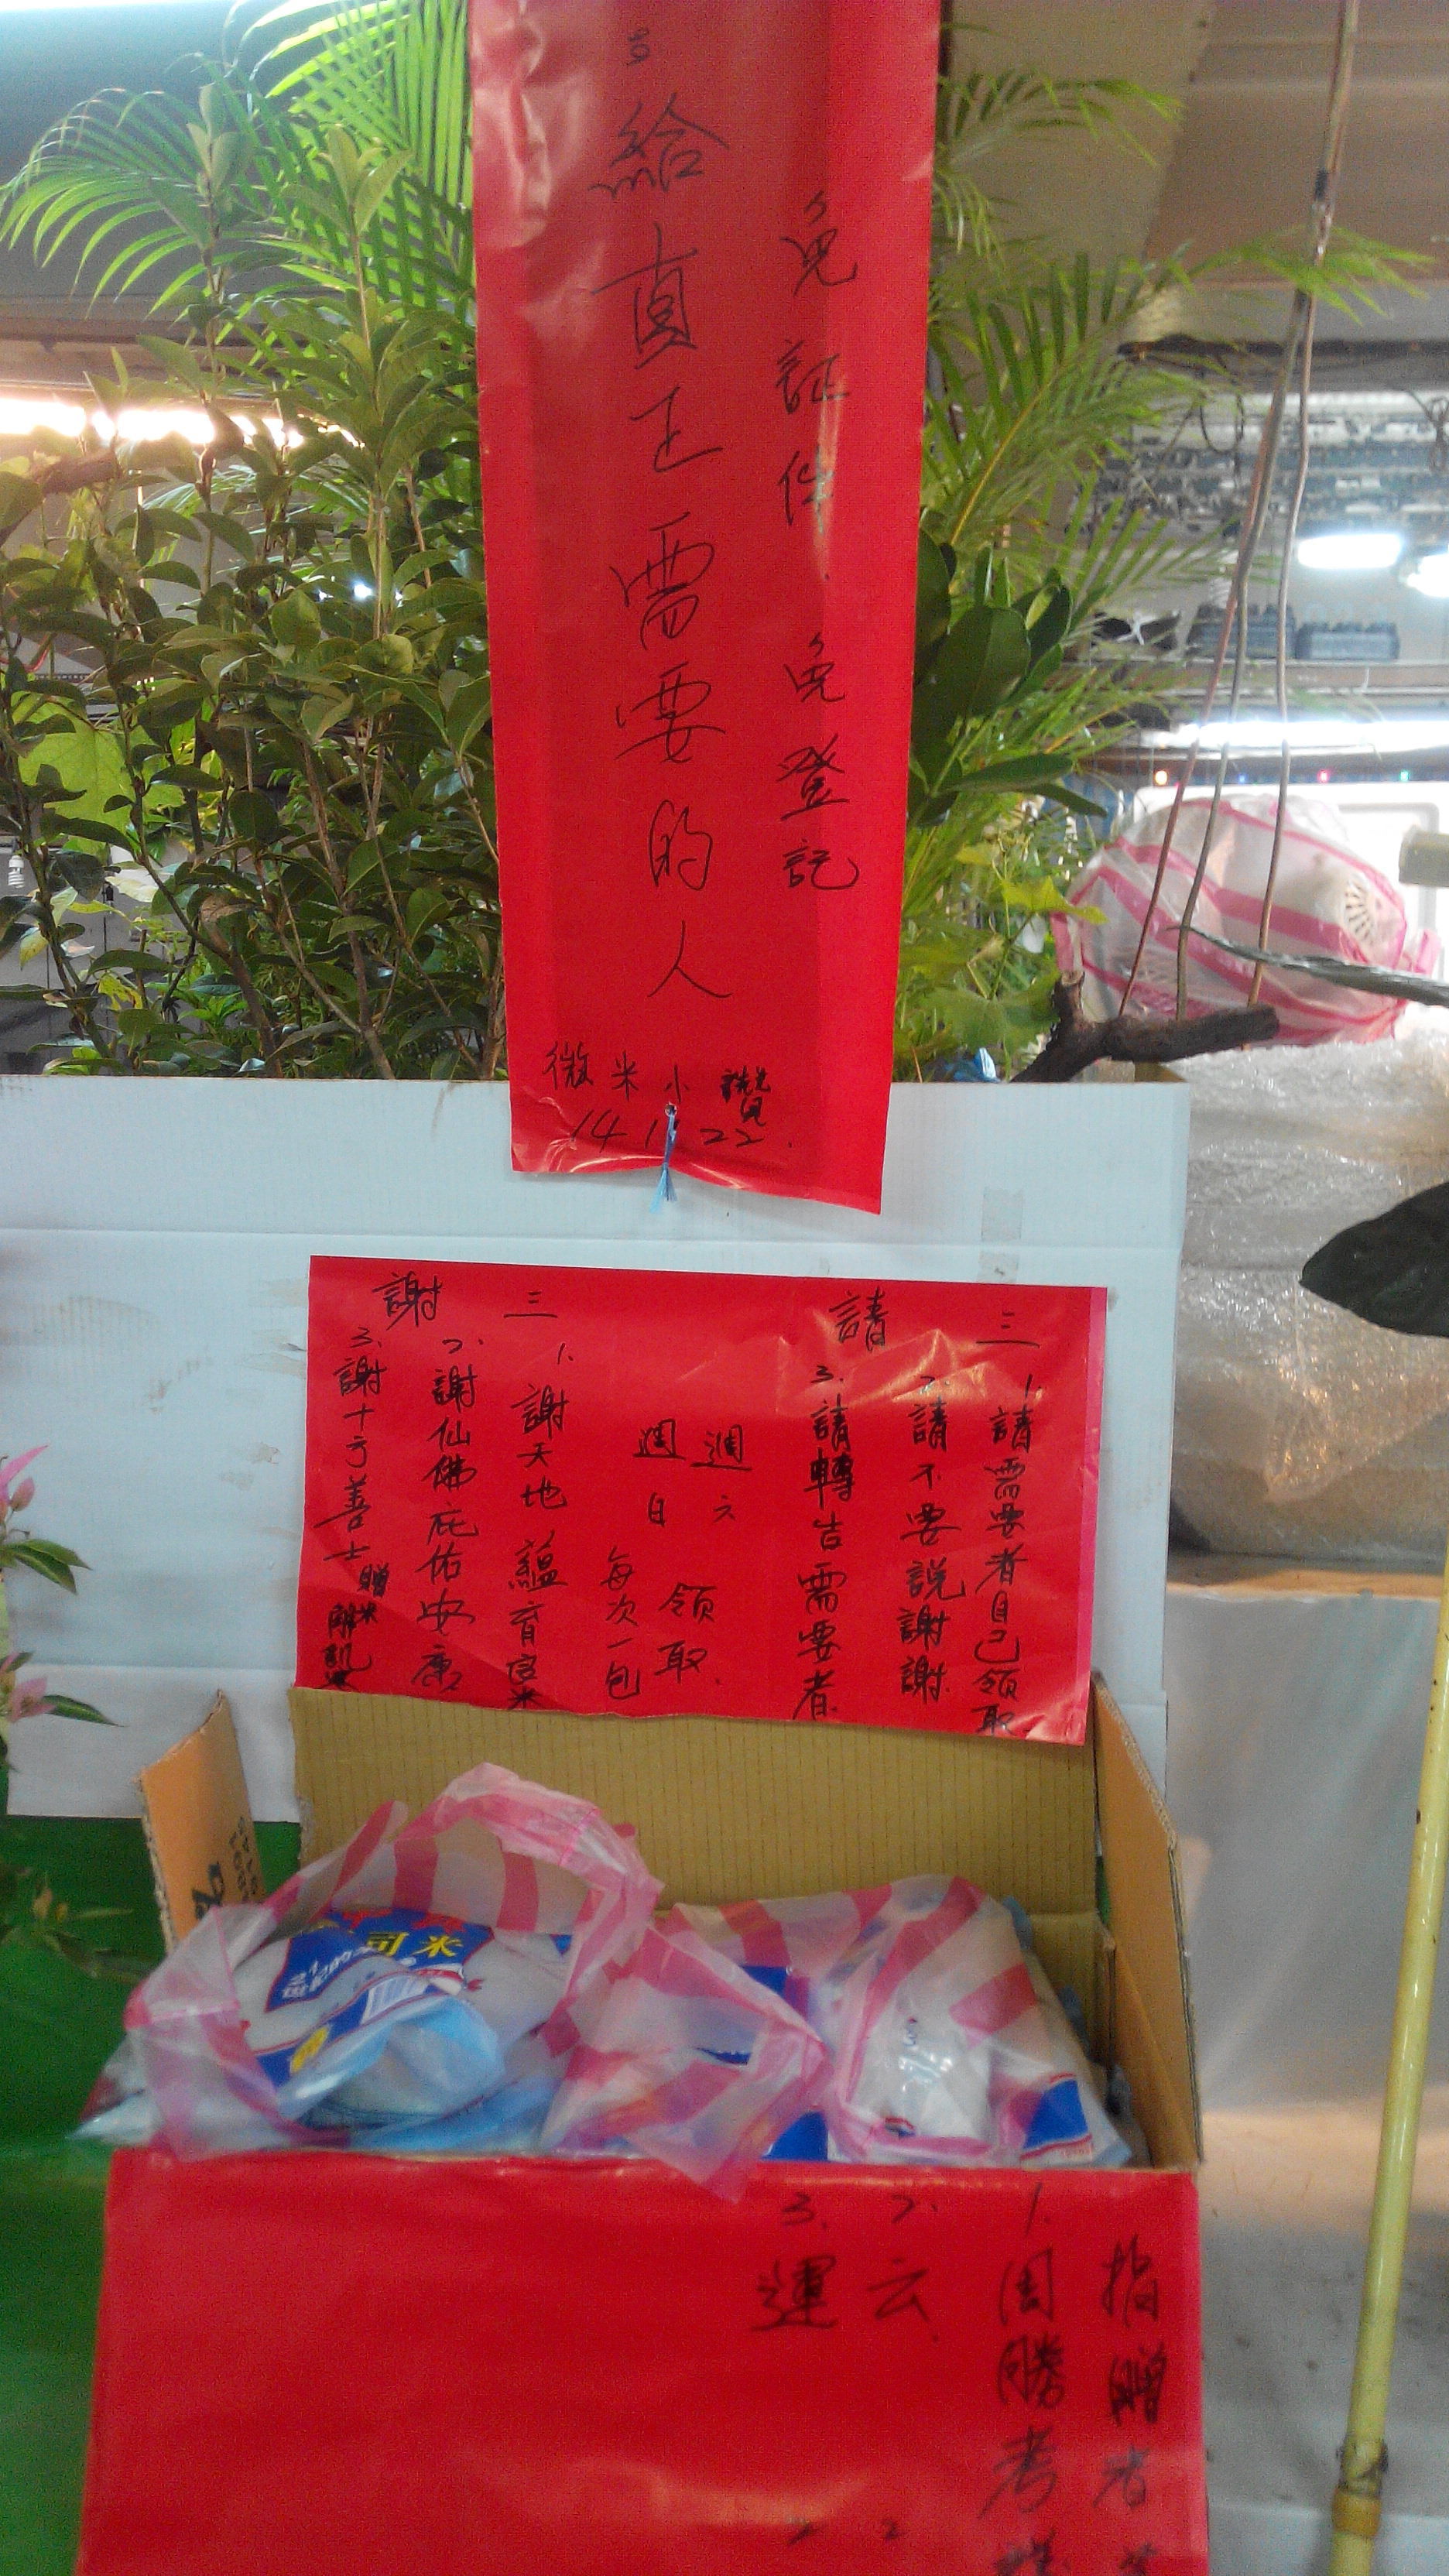 免証件.免登記
給真正需要的人
微米小讚
三請
1.請需要者自己領取
2.請不要說謝謝
3.請轉告需要者
週六
週日
領取.
每次一包
三謝
1.謝天地蘊育
2.謝仙佛庇佑安康
3.謝十方善士贈米
司米
捐贈者
1.周勝考
2.云
3.運